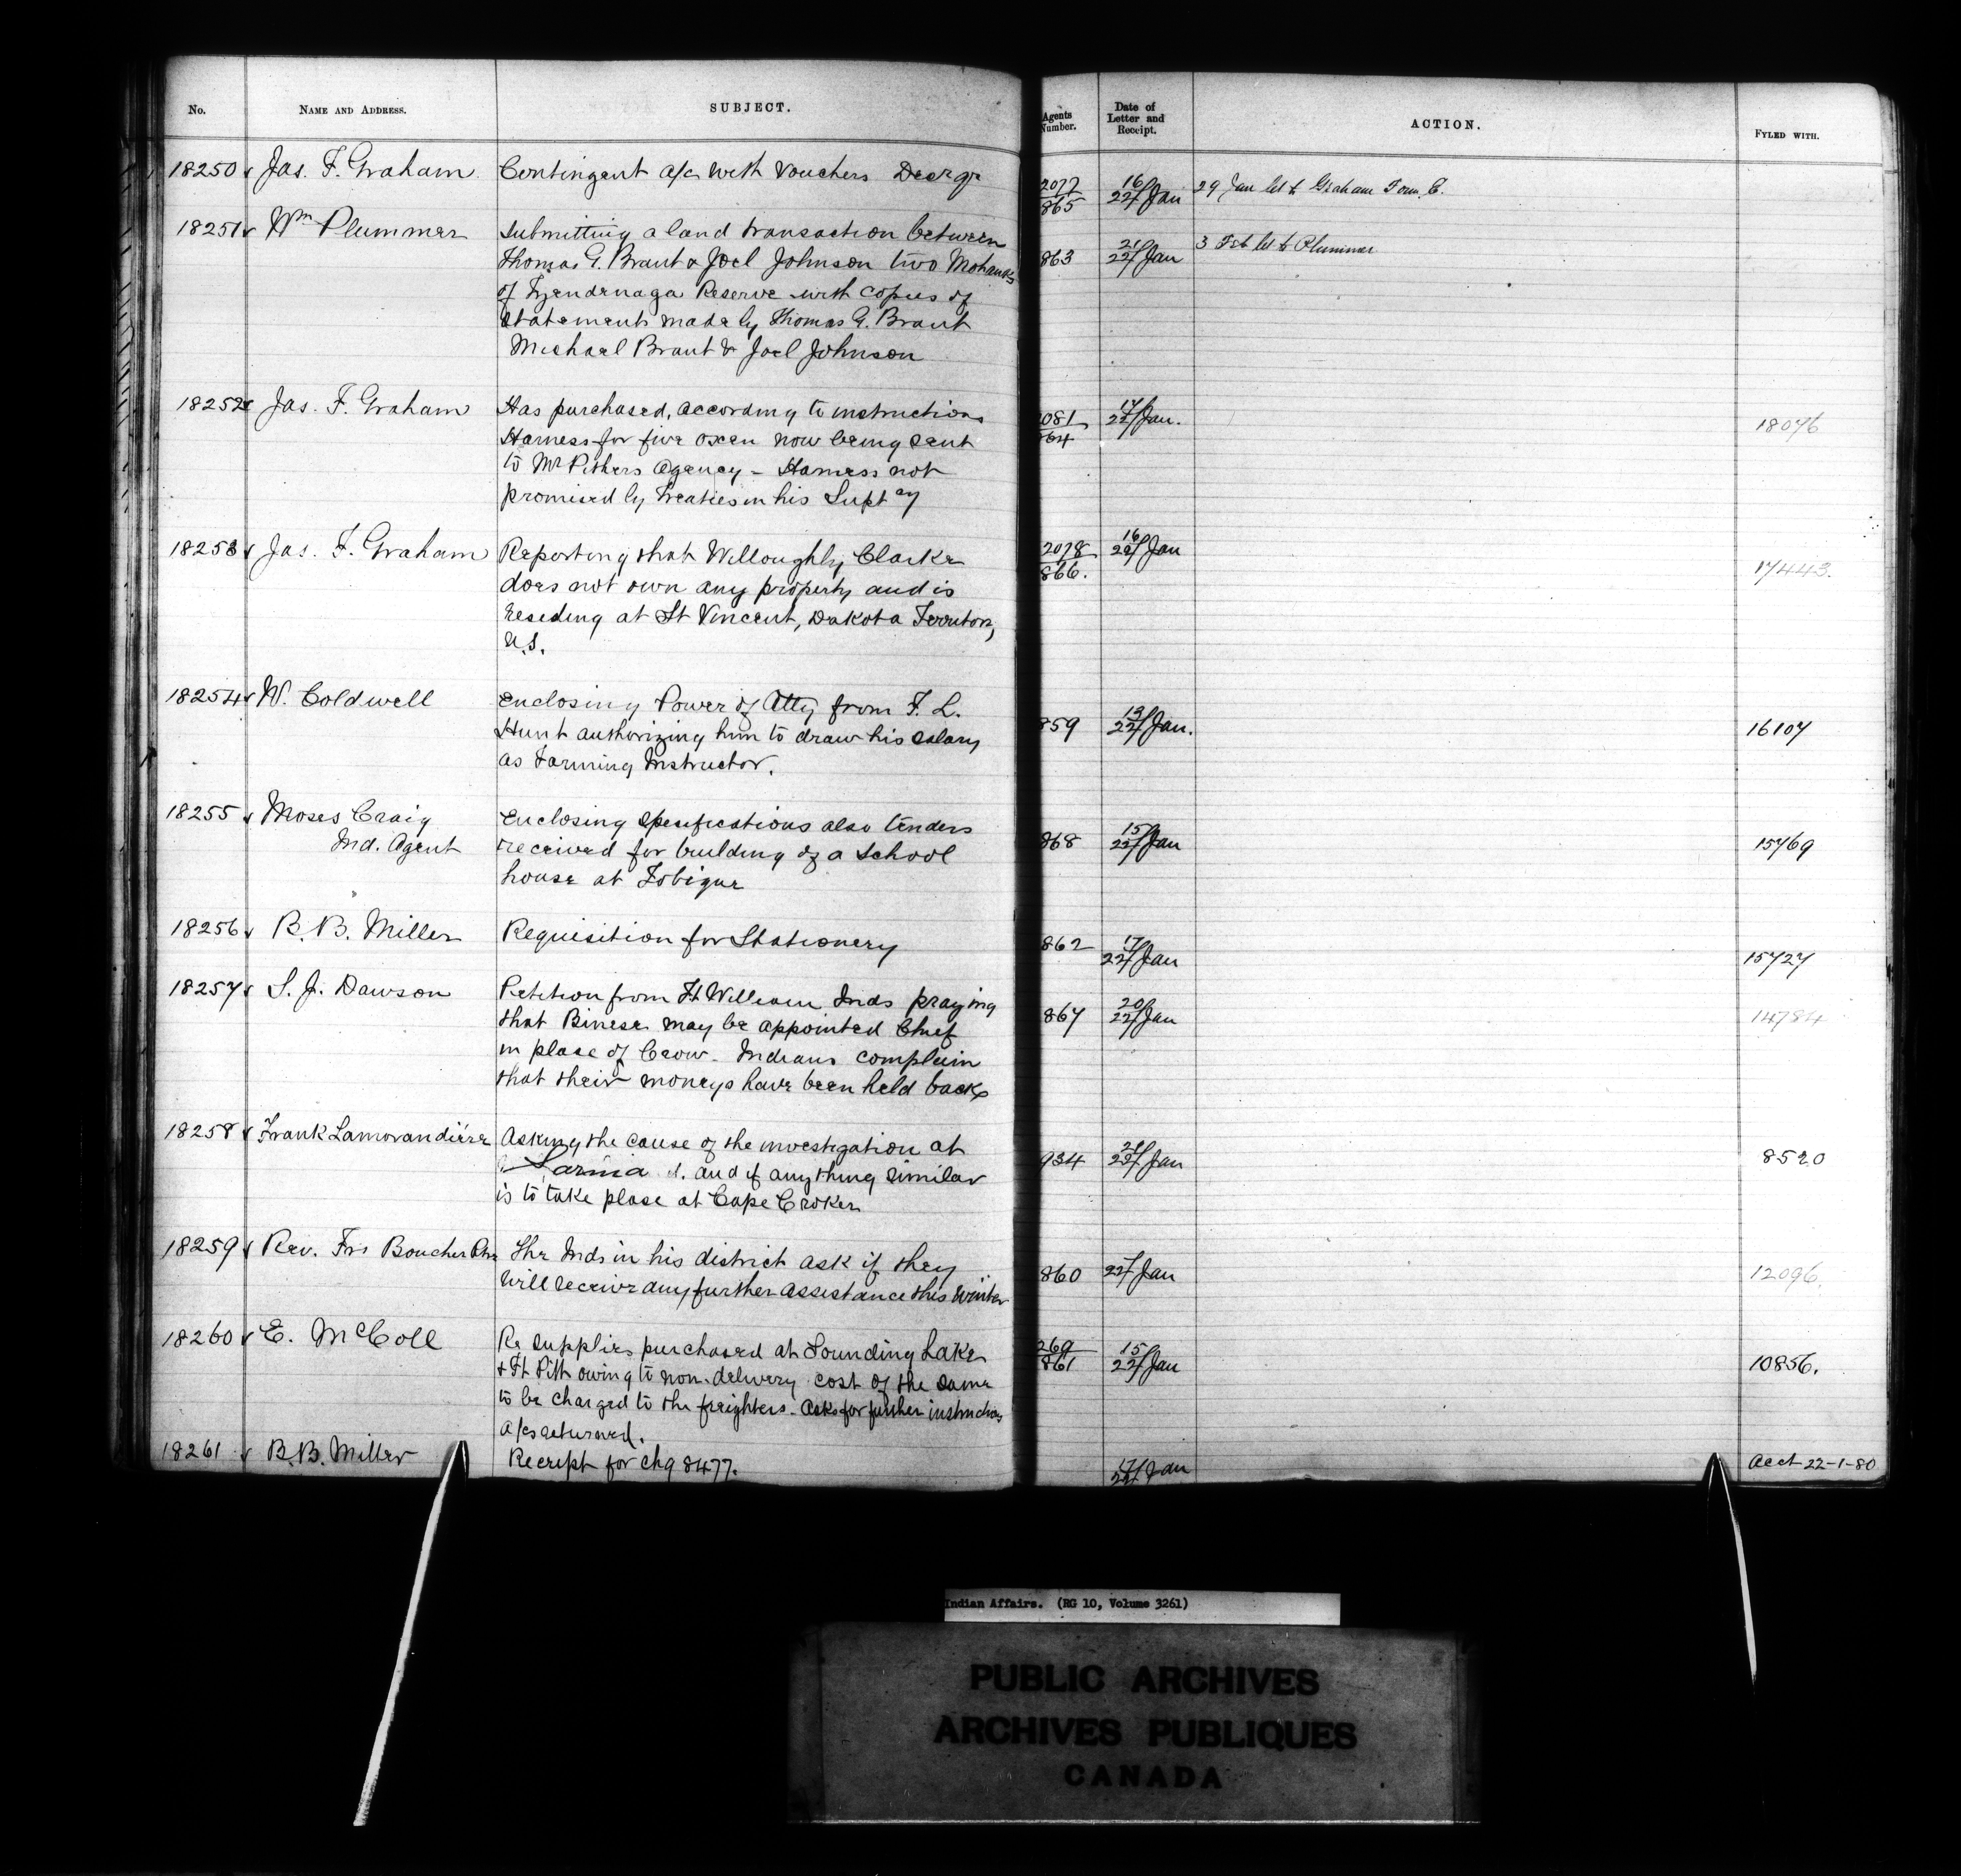 No. NAME AND ADDRESS. SUBJECT. Agents Number. Date of Letter and Receipt. ACTION. FYLED WITH.
18250 Jas. F. Graham Contingent a/c with Vouchers 2077/865 16/22 Jan 29 Jan let to Graham
18251 Wm Plummer Submitting a land transaction between 863 21/22 Jan 3 Feb let to Plummer
Thomas G. Brant & Joel Johnson two Mohawks
of Tyendenaga Reserve with copies of
Statements made by Thomas G. Brant
Michael Brant & Joel Johnson
18252 Jas. F. Graham Has purchased, according to instructions 2081/864 17/22 Jan. 18076
Harness for five oxen now being sent
to Mr Pithers Agency - Harness not
promised by Treaties in his Suptcy
18253 Jas. F. Graham Reporting that Willoughby Clarke 2078/866. 16/22 Jan 17443.
does not own any property and is
reseding at St Vincent, Dakota Territory,
U.S.
18254 W. Coldwell Enclosing Power of Atty from F. L. 859 13/22 Jan. 16107
Hunt authorizing him to draw his salary
as Farming Instructor.
18255 Moses Craig Enclosing Specifications also tenders 868 15/22 Jan 15769
Ind. Agent received for building of a School
house at Tobique
18256 B. B. Miller Requisition for Stationery 862 17/22 Jan 15727
18257 S. J. Dawson Petition from Ft William Inds praying 867 20/22 Jan 14784
that Binese may be appointed Chief
in place of Crow - Indians complain
that their moneys have been held back
18258 Frank Lamorandière Asking the cause of the investigation at 934 21/22 Jan 8520
Sarnia and if anything similar
is to take place at Cape Croker
18259 Rev. Frs Boucher Ptre The Inds in his district ask if they 860 22 Jan 12096.
will receive any further assistance this winter
18260 E. McColl Re supplies purchased at Sounding Lake 269/861 15/22 Jan 10856.
& Ft Pitt owing to non-delivery cost of the same
to be charged to the freighters - Asks for further instructions
a/cs returned.
18261 B. B. Miller Receipt for chq 8477. 17/22 Jan Acct 22-1-80
Indian Affairs. (RG 10, Volume 3261)
PUBLIC ARCHIVES
ARCHIVES PUBLIQUES
CANADA